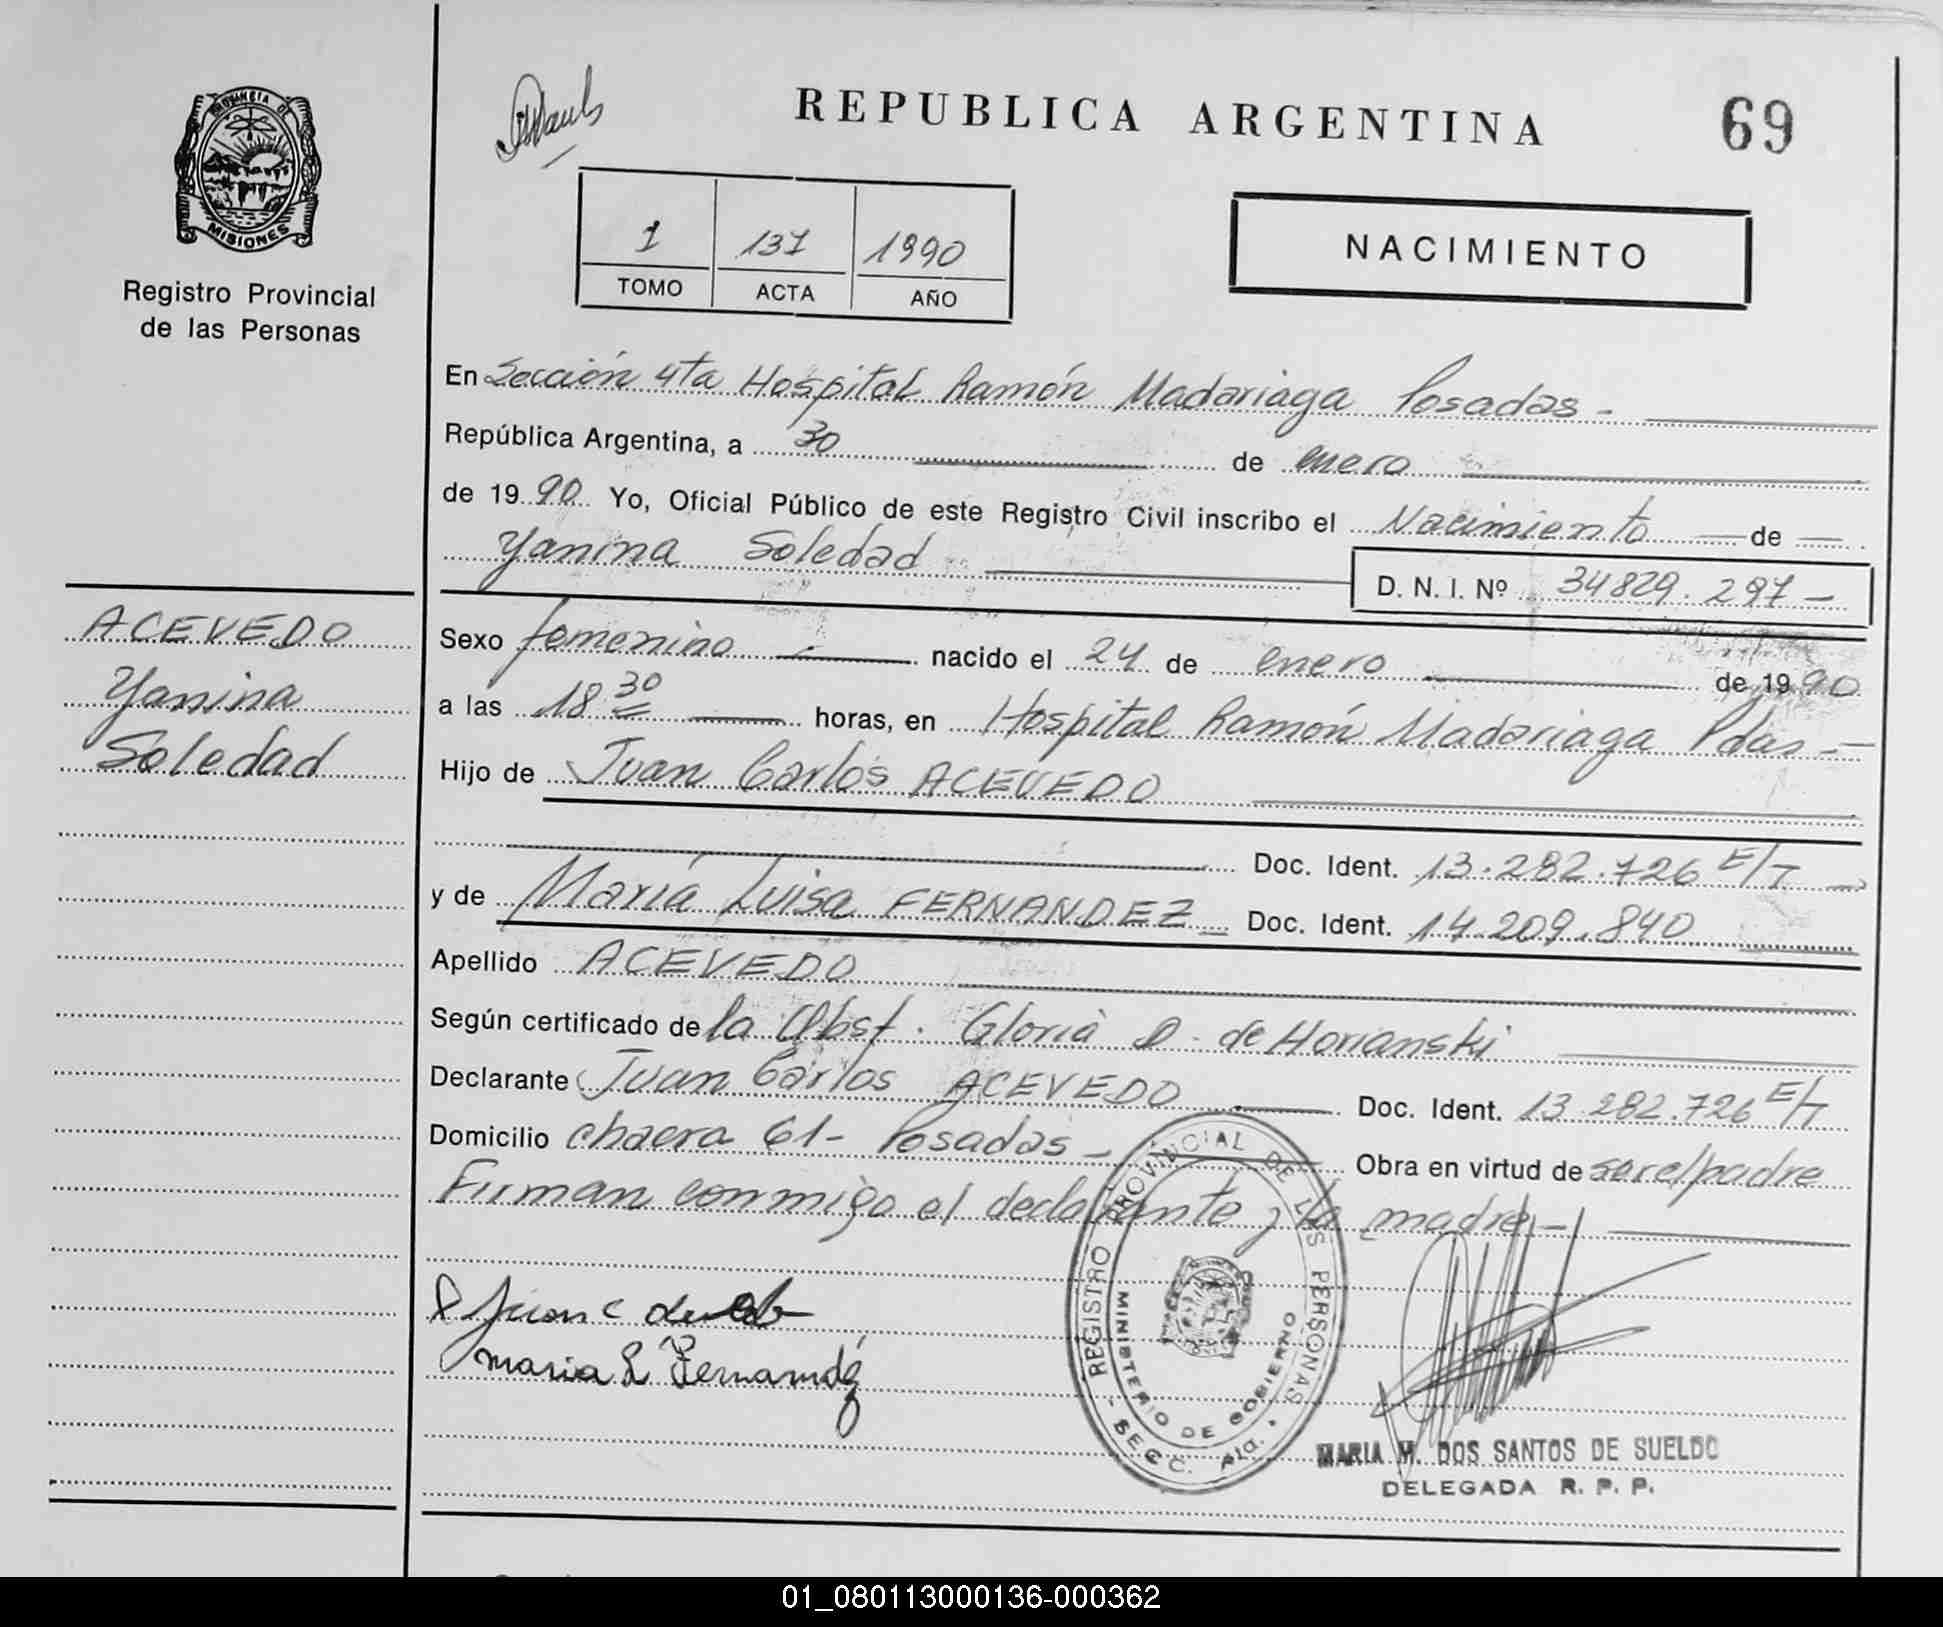 REPUBLICA ARGENTINA
69
PROVINCIA DE
MISIONES
Registro Provincial
de las Personas
1 137 1990
TOMO ACTA AÑO
NACIMIENTO
En Sección 4ta Hospital Ramón Madariaga Posadas -
República Argentina, a 30 de enero
de 1990 Yo, Oficial Público de este Registro Civil inscribo el Nacimiento de
Yanina Soledad D. N. I. Nº 34829.297 -
ACEVEDO
Yanina
Soledad
Sexo femenino nacido el 24 de enero de 1990
a las 18 30 horas, en Hospital Ramón Madariaga Pdas -
Hijo de Juan Carlos ACEVEDO
Doc. Ident. 13.282.726 E/T
y de María Luisa FERNANDEZ Doc. Ident. 14.209.840
Apellido ACEVEDO
Según certificado de la Obst. Gloria D. de Horianski
Declarante Juan Carlos ACEVEDO Doc. Ident. 13.282.726 E/T
Domicilio chacra 61 - Posadas - Obra en virtud de ser el padre
Firman conmigo el declarante y la madre -
Juan C
maria L Fernandez
REGISTRO PROVINCIAL DE LAS PERSONAS
MINISTERIO DE GOBIERNO
- SECC. 4ta. -
MARIA M. DOS SANTOS DE SUELDO
DELEGADA R. P. P.
01_080113000136-000362